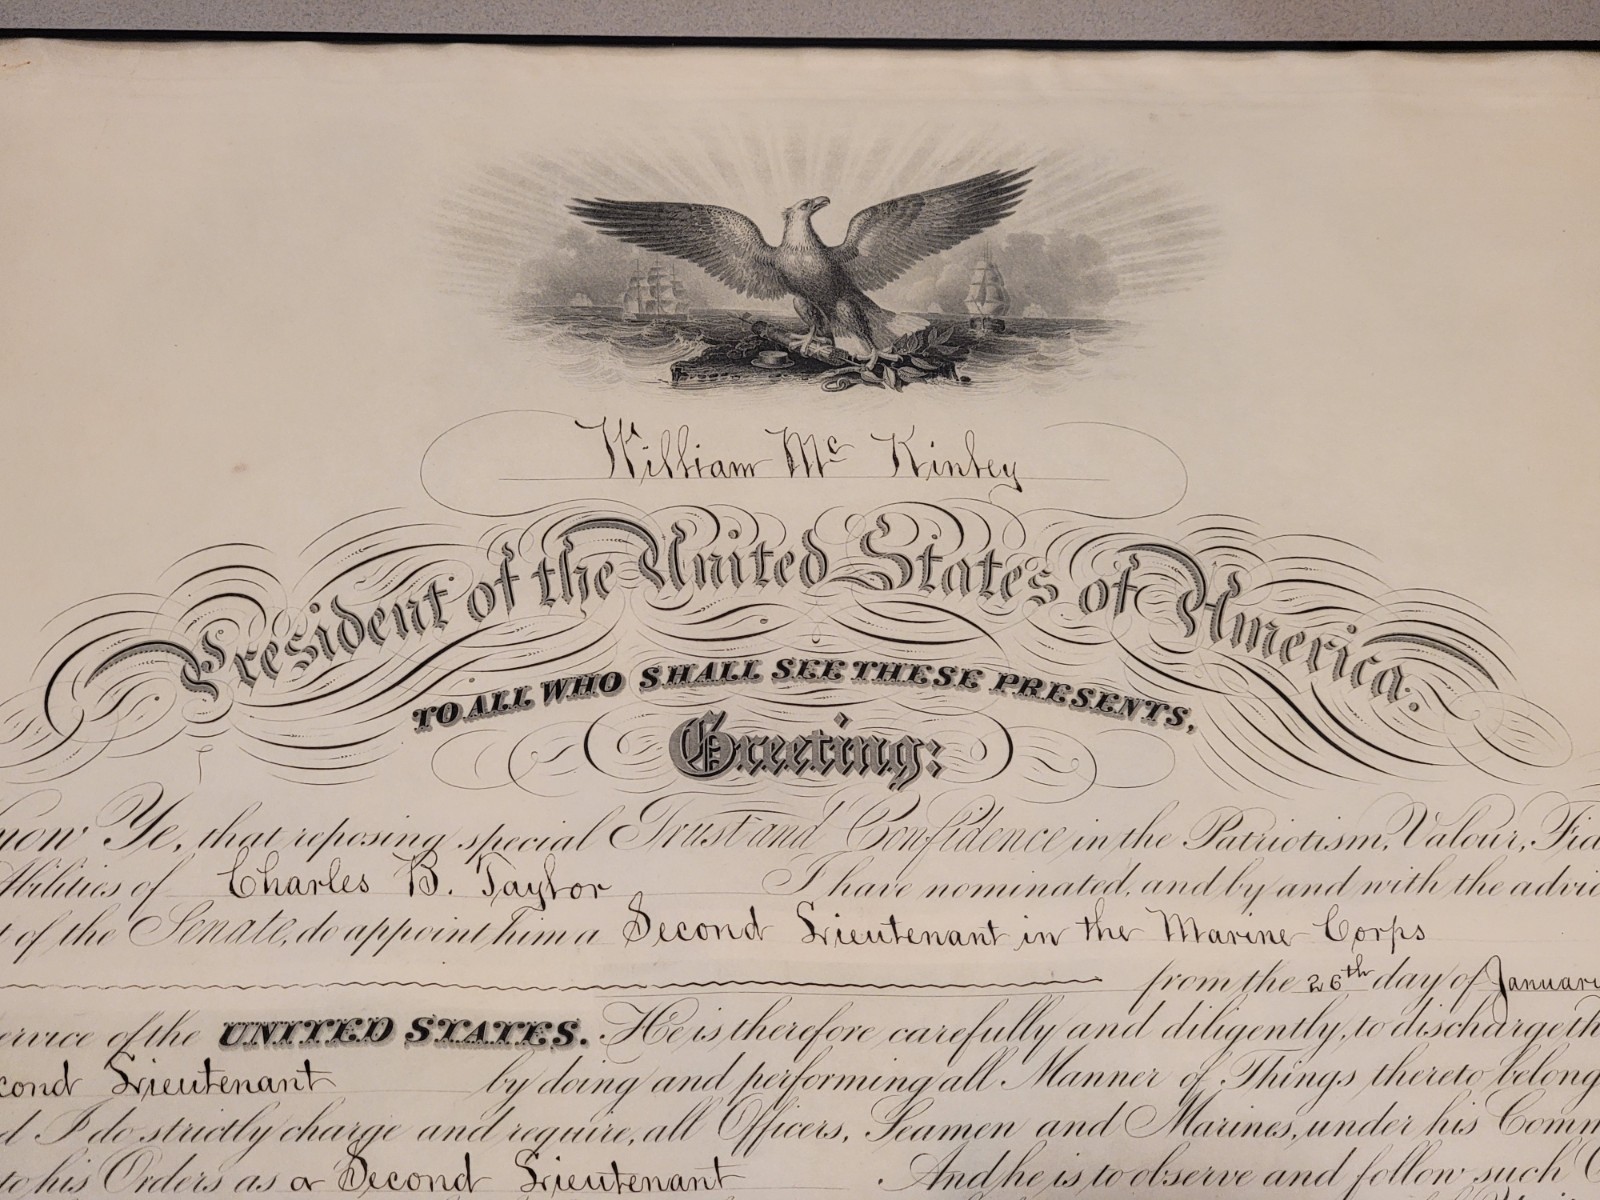 William Mc Kinley
President of the United States of America.
TO ALL WHO SHALL SEE THESE PRESENTS,
Greeting:
Ye, that reposing special Trust and Confidence in the Patriotism, Valour,
Abilities of Charles B. Taylor I have nominated, and by and with the
of the Senate, do appoint him a Second Lieutenant in the Marine Corps
from the 26th day of
of the UNITED STATES. He is therefore carefully and diligently, to discharge
Lieutenant by doing and performing all Manner of Things thereto
I do strictly charge and require, all Officers, Seamen and Marines, under his
to his Orders as a Second Lieutenant. And he is to observe and follow such